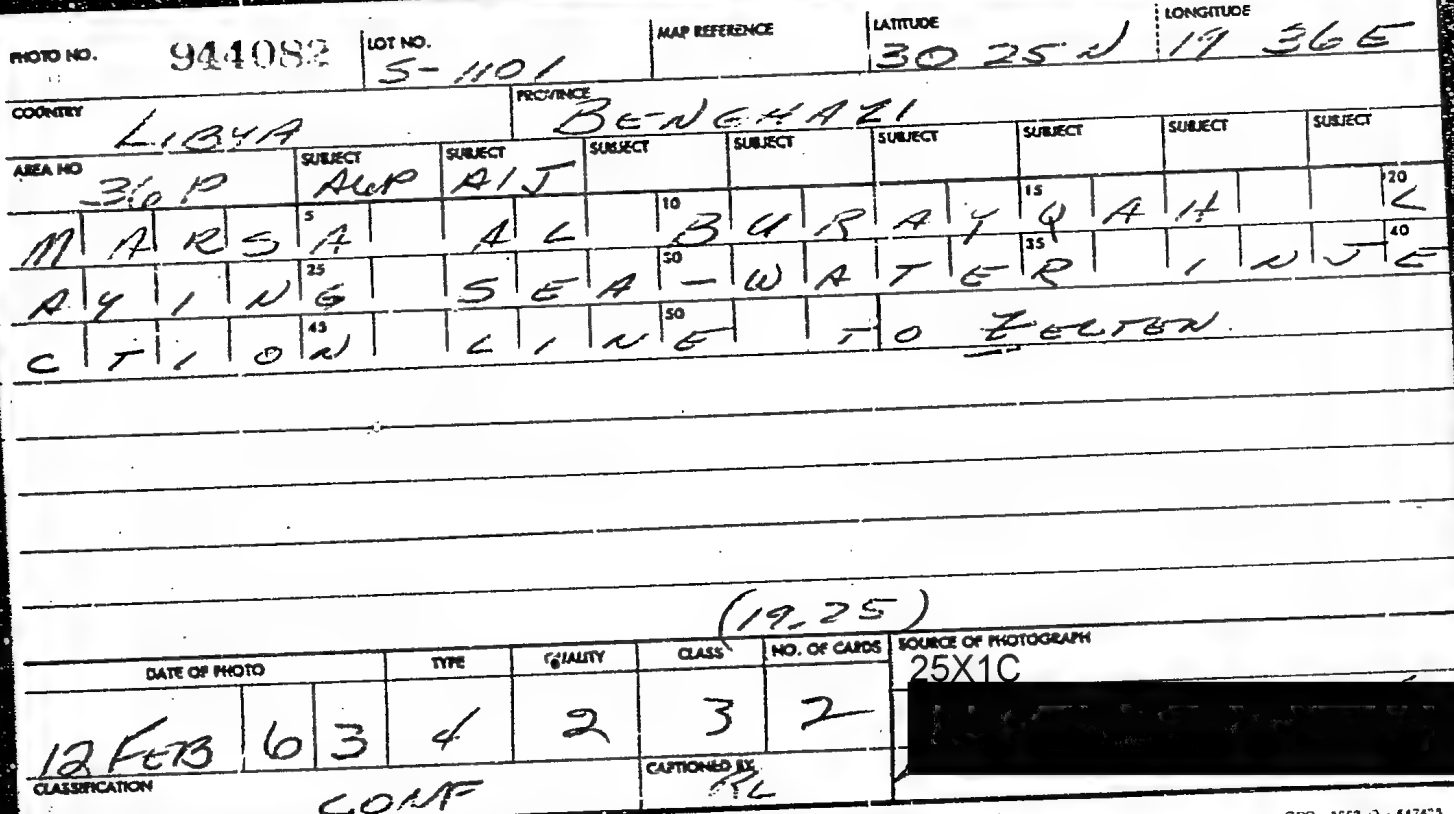 PHOTO NO. 944082 LOT NO. S-1101 MAP REFERENCE LATITUDE 30 25 N LONGITUDE 19 36 E
COUNTRY LIBYA PROVINCE BENGHAZI
AREA NO 36P SUBJECT SUBJECT AIJ SUBJECT SUBJECT SUBJECT SUBJECT SUBJECT SUBJECT
MARSA AL BURAYQAH L
AYING SEA-WATER INJE
CTION LINE TO ZELTEN
(19,25)
DATE OF PHOTO TYPE QUALITY CLASS NO. OF CARDS SOURCE OF PHOTOGRAPH
25X1C
12 FEB 63 4 2 3 2
CLASSIFICATION CONF CAPTIONED BY RL